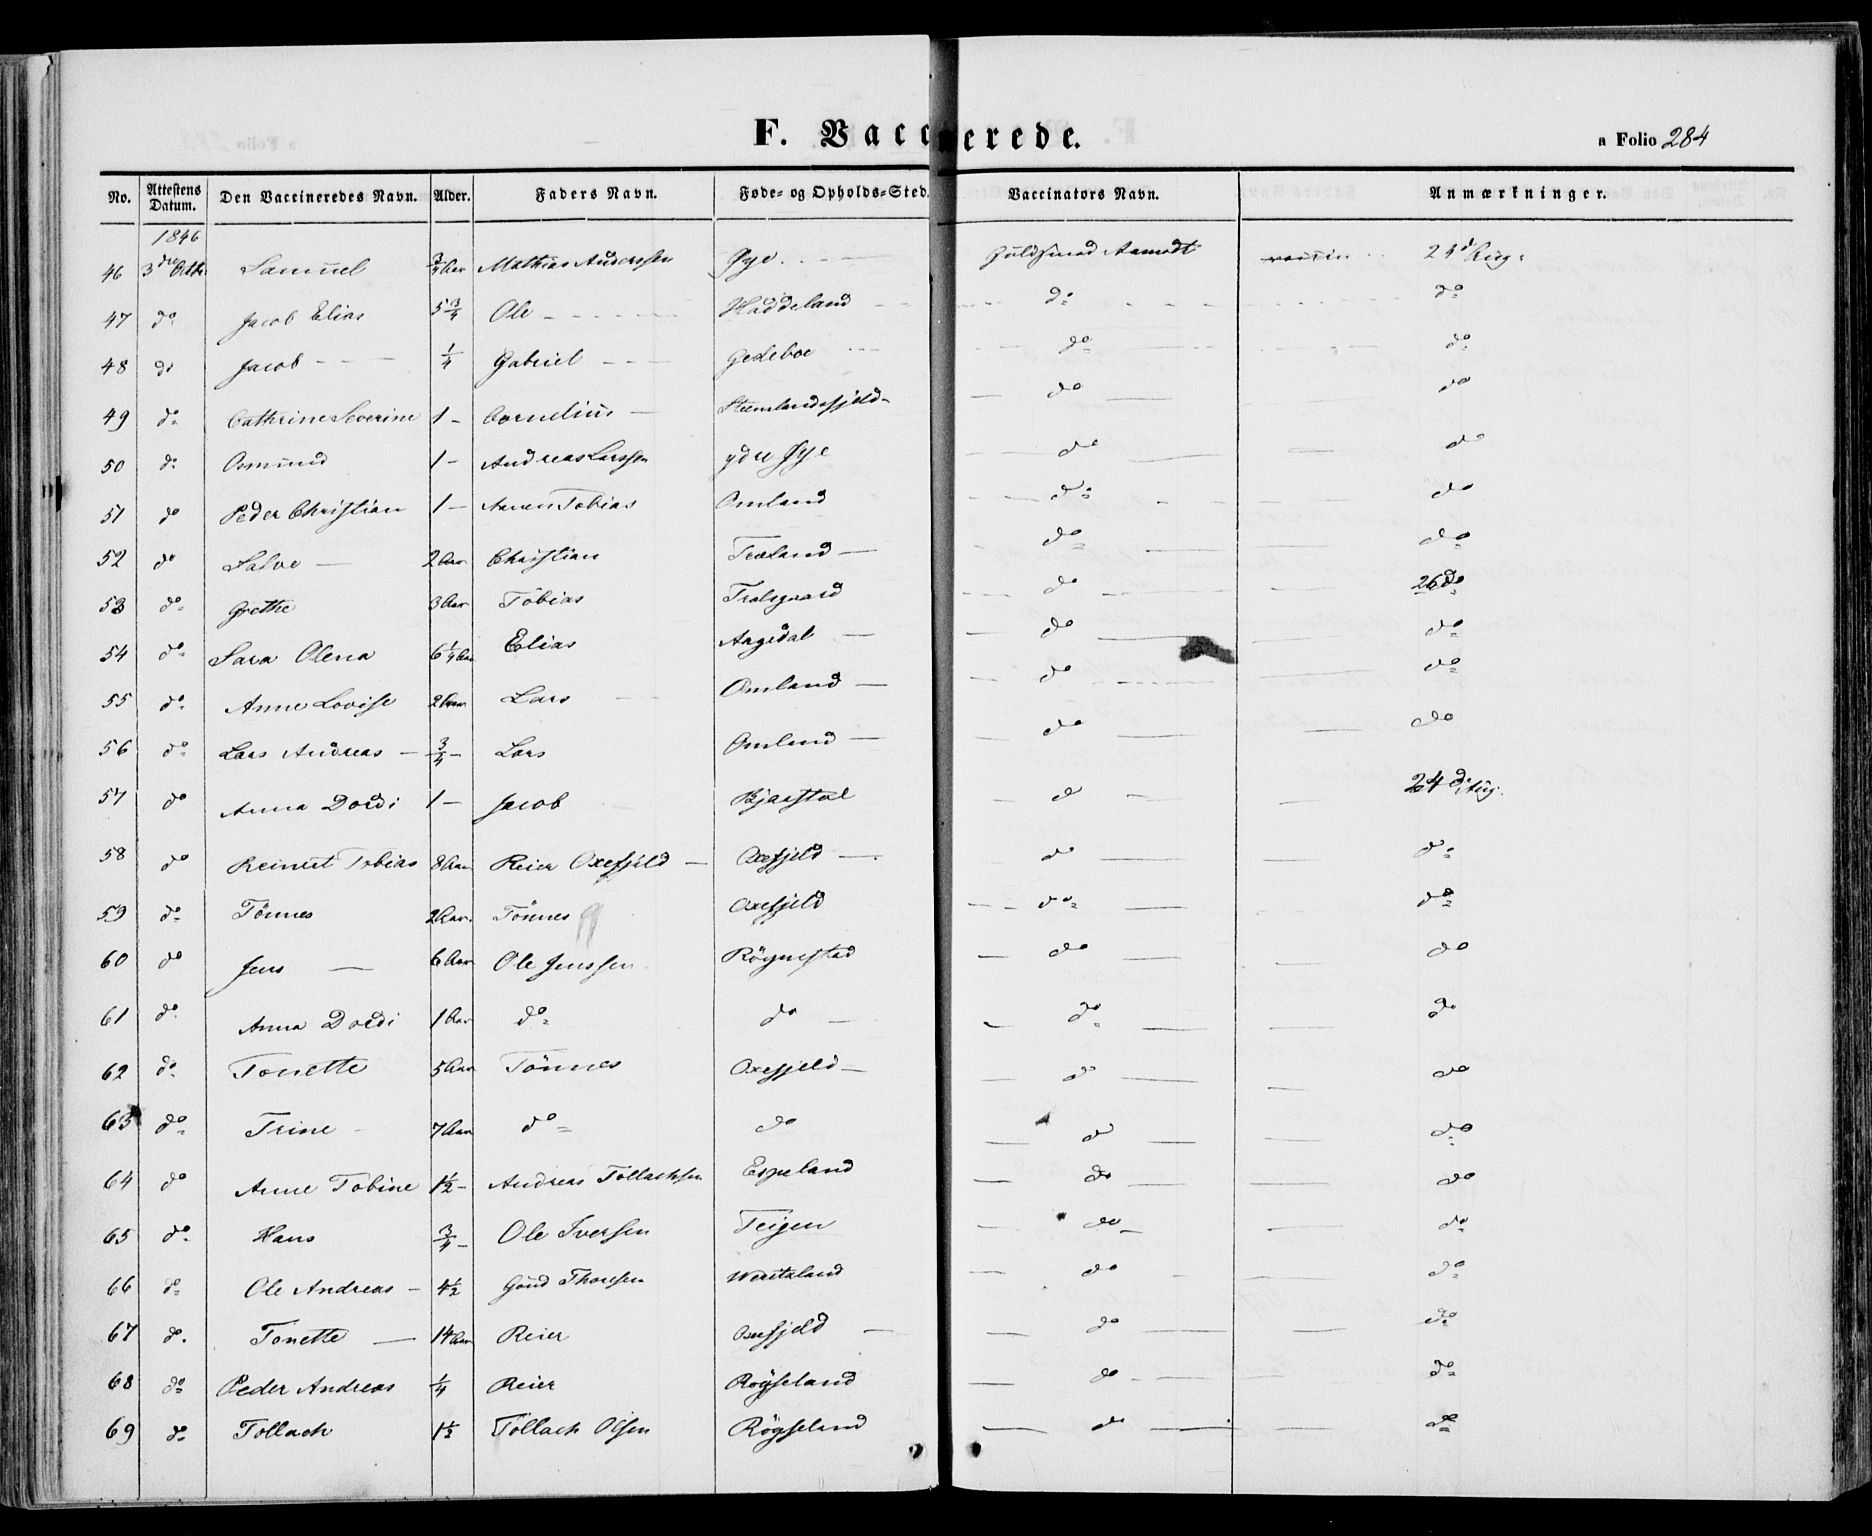 F. Vaccinerede.
a Folio 284
No. Attestens Datum. Den Vaccineredes Navn. Alder. Faders Navn. Føde- og Opholds-Sted. Vaccinators Navn. Anmærkninger.
1846
46 3die Octb. Samuel 3/4 Aar Mathias Anderssen Øye Guldsmed Aamodt vaccin
47 do Jacob Elias 5 3/4 Ole Haddeland do do
48 do Jacob 1/4 Gabriel Gedeboe do do
49 do Cathrine Severine 1 Cornelius do do
50 do Osmund 1 Andreas Larssen ydre Øye do do
51 do Peder Christian 1 Tobias Omland do do
52 do Salve 2 Aar Christian Træland do do
53 do Grethe 3 Aar Tobias Tralsgaard do 26 do
54 do Sara Olena 6 1/4 Aar Elias Aagedal do do
55 do Anne Lovise 2 Aar Lars Omland do do
56 do Lars Andreas 3/4 Lars Omland do do
57 do Anna Dordi 1 Jacob do 24d Aug.
58 do Reinert Tobias 8 Aar Reier Oxefjeld Oxefjeld do do
59 do Tönnes 2 Aar. Tönnes Oxefjeld do do
60 do Jens 6 Aar Ole Jenssen Rögnestad do do
61 do Anna Dordi 1 Aar do do do do
62 do Tonette 5 Aar Tönnes Oxefjeld do do
63 do Trine 7 Aar do do do do
64 do Anne Tobine 1 1/2 Andreas Tollachsen Espeland do do
65 do Hans 3/4 Ole Iversen Teigen do do
66 do Ole Andreas 4 1/2 Thoresen do do
67 do Tonette 14 Aar Reier Oxefjeld do do
68 do Peder Andreas 1/4 Reier Röyseland do do
69 do Tollach 1 1/2 Tollach Olsen Röyseland do do